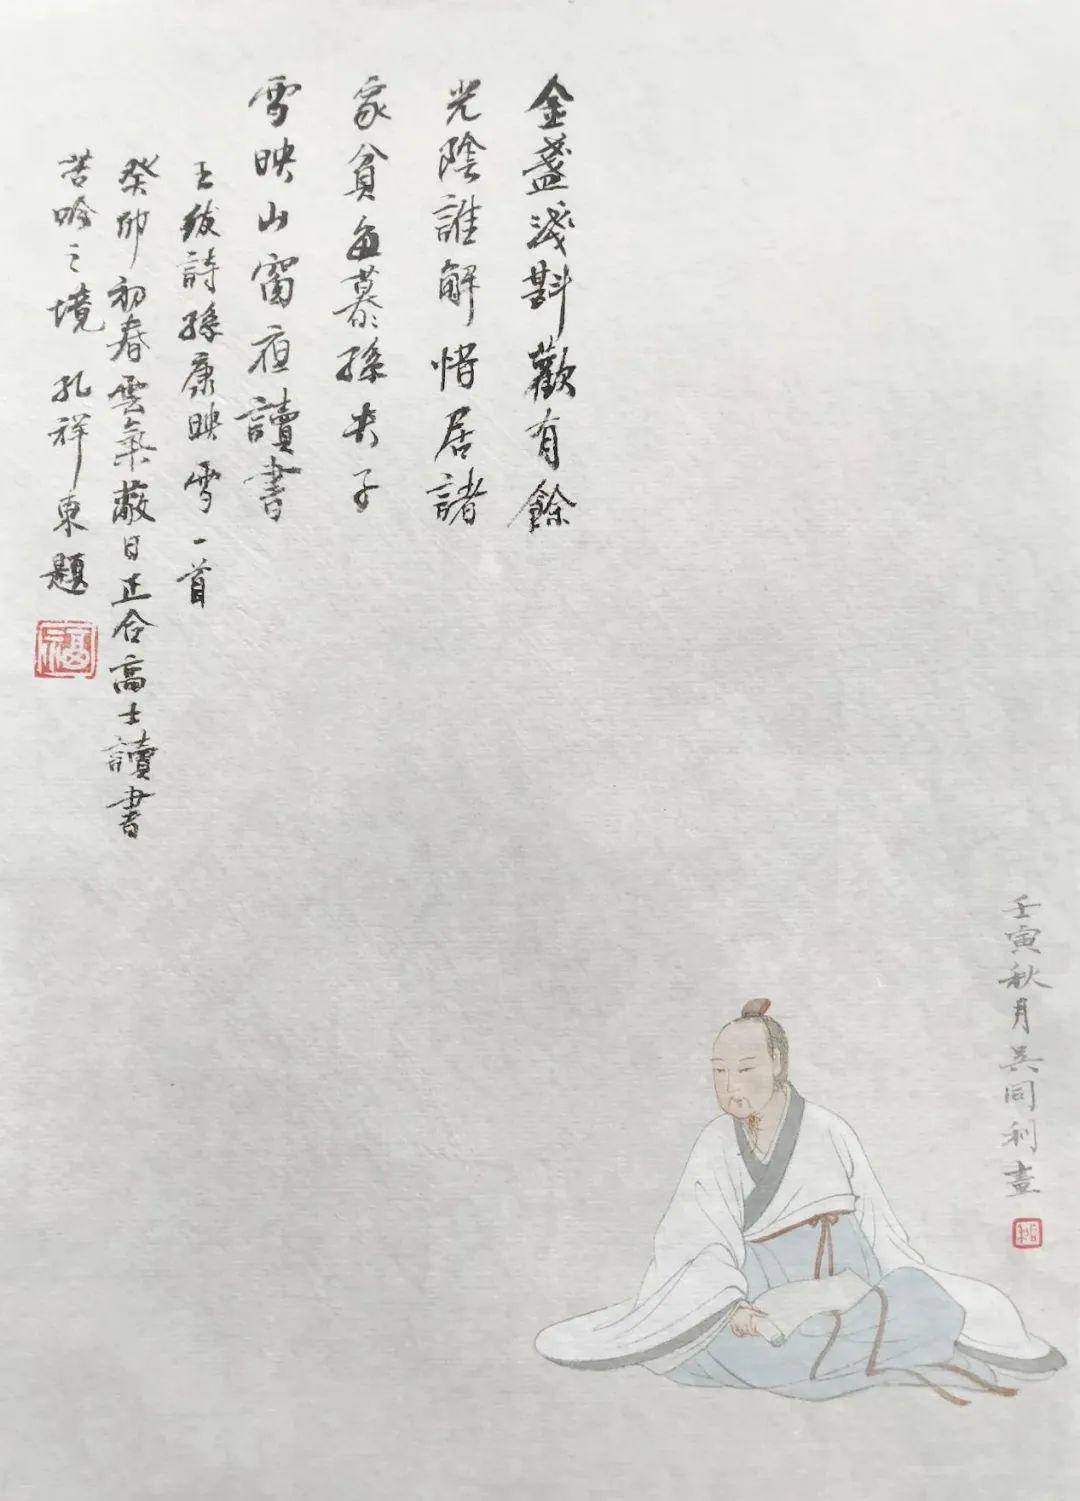 金盞淺斟歡有餘
光陰誰解惜居諸
家貧每慕孫夫子
雪映山窗夜讀書
王紱詩孫康映雪一首
癸卯初春雲氣蔽日正合高士讀書
苦吟之境 孔祥東題
福
壬寅秋月吳同利畫